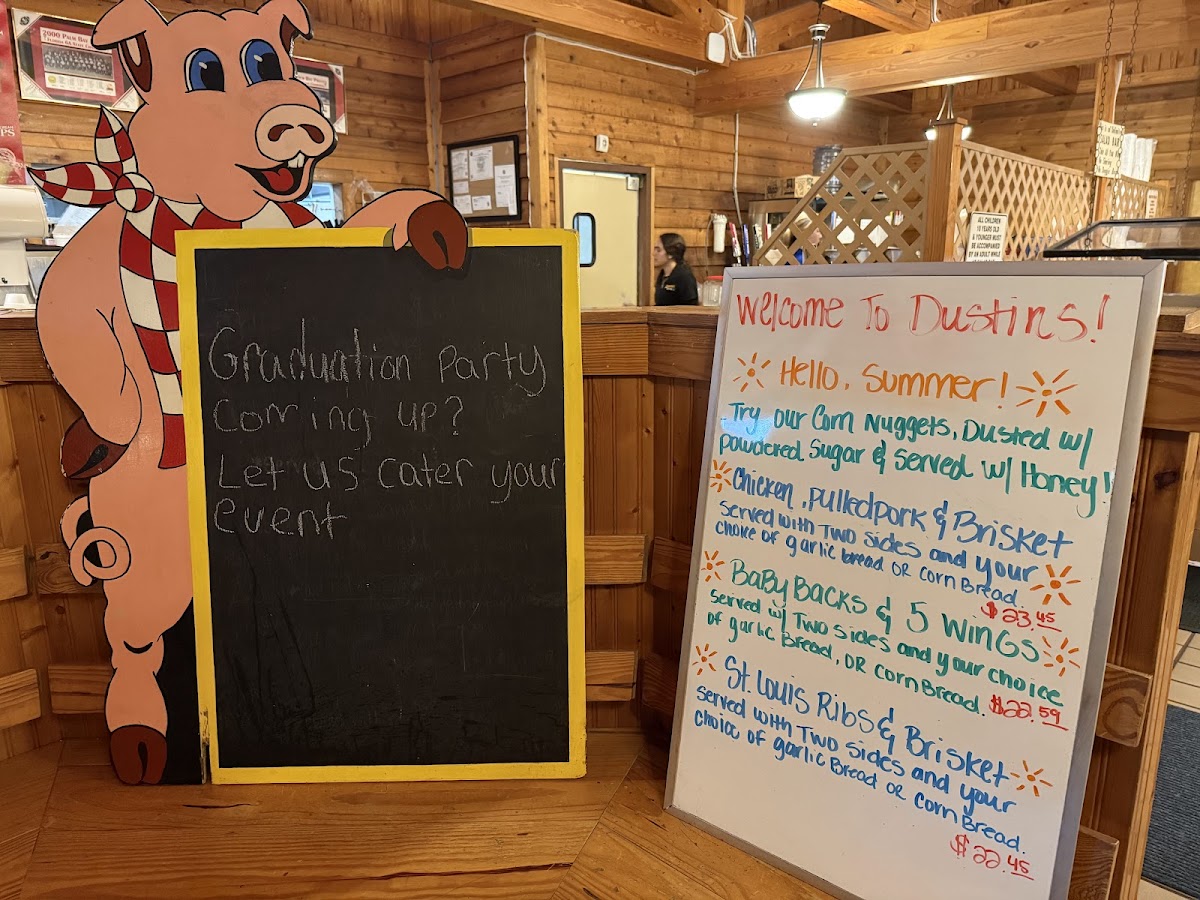 2000 Palm Bay
Graduation Party
Coming up?
Let us cater your
event
Welcome To Dustins!
Hello, Summer!
Try our Corn Nuggets, Dusted w/
powdered Sugar & Served w/ Honey!
Chicken, pulledpork & Brisket
served with Two sides and your
choice of garlic bread OR corn Bread.
$23.45
Baby Backs & 5 wings
served w/ Two sides and your choice
of garlic Bread, OR corn Bread. $22.59
St. Louis Ribs & Brisket
served with Two sides and your
choice of garlic Bread or corn Bread.
$22.45
ALL CHILDREN
10 YEARS OLD
& YOUNGER MUST
BE ACCOMPANIED
BY AN ADULT WHILE
SALAD BAR